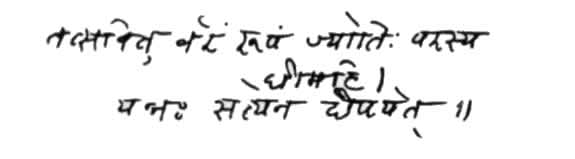 तत्सवितु र्वरं रूपं ज्योतिः परस्य
धीमहि।
यन्नः सत्येन दीपयेत्॥